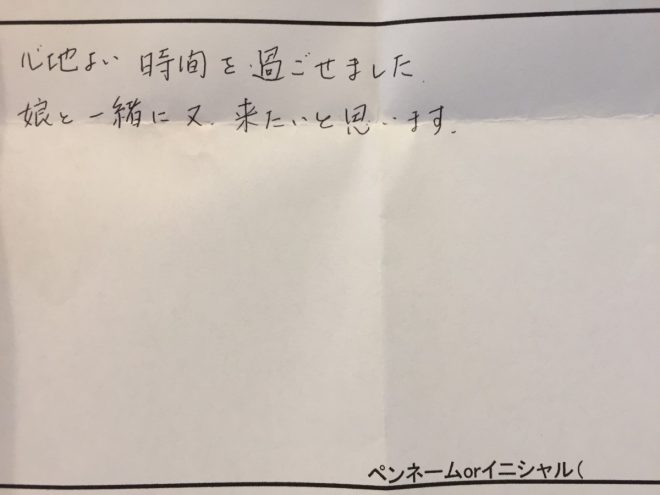 心地よい時間を過ごせました.
娘と一緒に又.来たいと思います.
ペンネームorイニシャル(